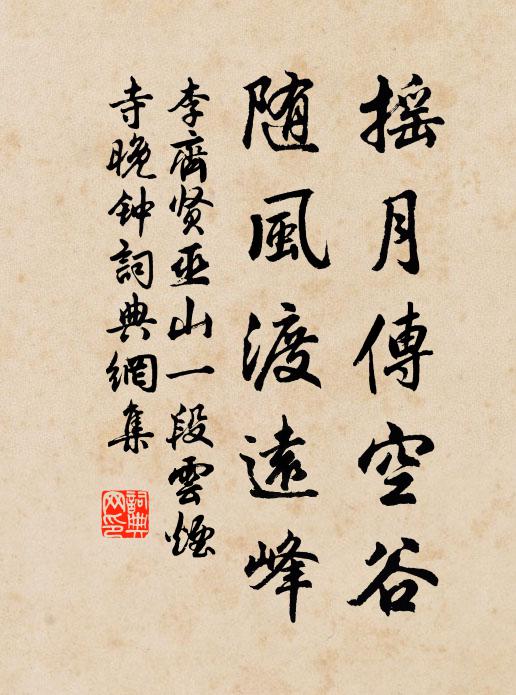 摇月傳空谷
随風渡遠峰
李齊贤巫山一段雲煙
寺晚钟詞典網集
詞典
网印